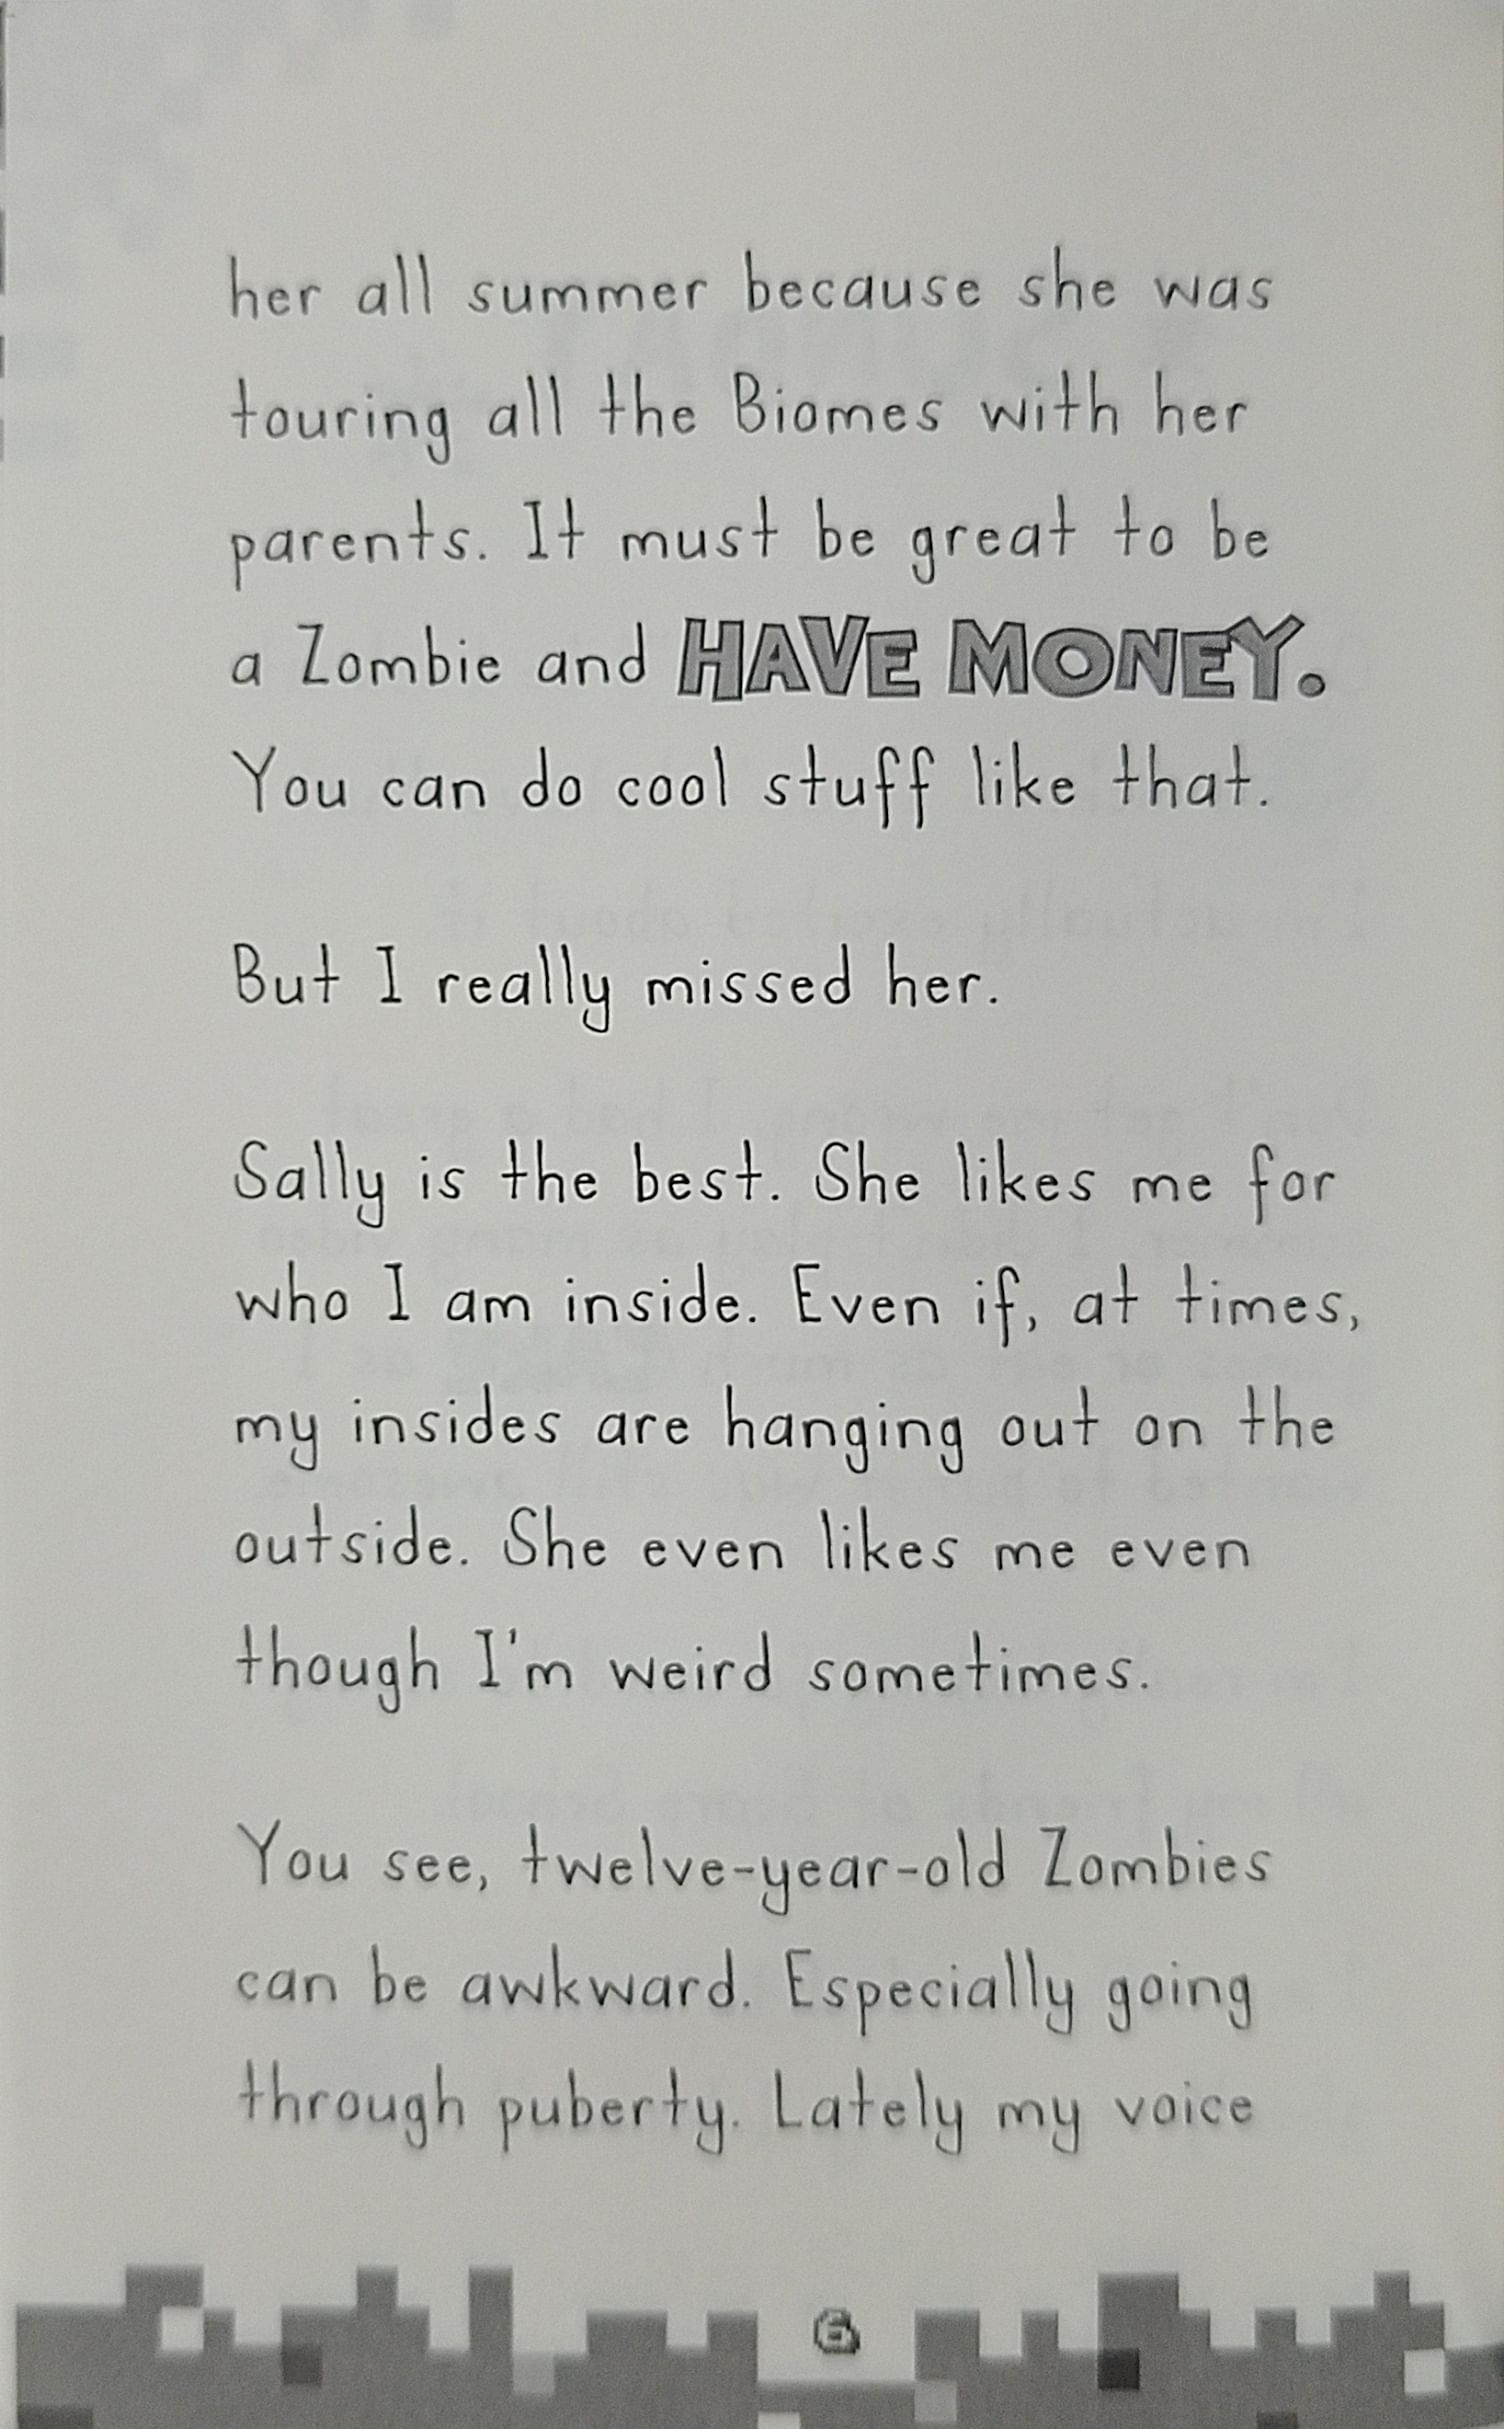 her all summer because she was
touring all the Biomes with her
parents. It must be great to be
a Zombie and HAVE MONEY.
You can do cool stuff like that.
But I really missed her.
Sally is the best. She likes me for
who I am inside. Even if, at times,
my insides are hanging out on the
outside. She even likes me even
though I'm weird sometimes.
You see, twelve-year-old Zombies
can be awkward. Especially going
through puberty. Lately my voice
6